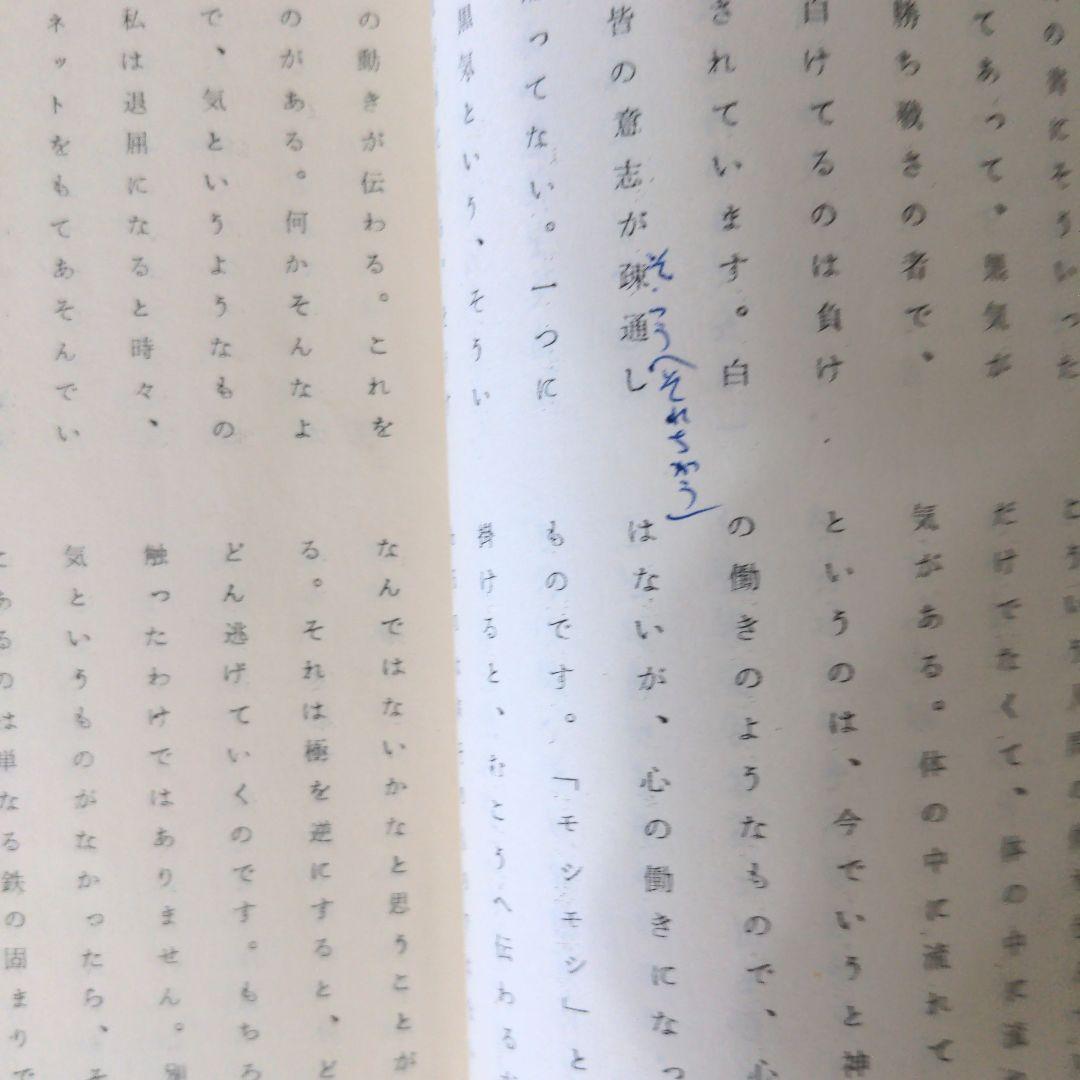 の者にそういった
てあって、黒気が
勝ち戦さの者で、
白けてるのは負け
されています。白
皆の意志が疎通し
そつう(それちがう)
ってない。一つに
黒気という、そうい
だけでなくて、体の中に
気がある。体の中に流れて
というのは、今でいうと神
の働きのようなもので、心
はないが、心の働きになっ
ものです。「モシモシ」と
掛けると、むこうへ伝わる
の動きが伝わる。これを
のがある。何かそんなよ
で、気というようなもの
私は退屈になると時々、
ネットをもてあそんでい
なんではないかなと思うことが
る。それは極を逆にすると、ど
どん逃げていくのです。もちろ
触ったわけではありません。別
気というものがなかったら、そ
にあるのは単なる鉄の固まりで